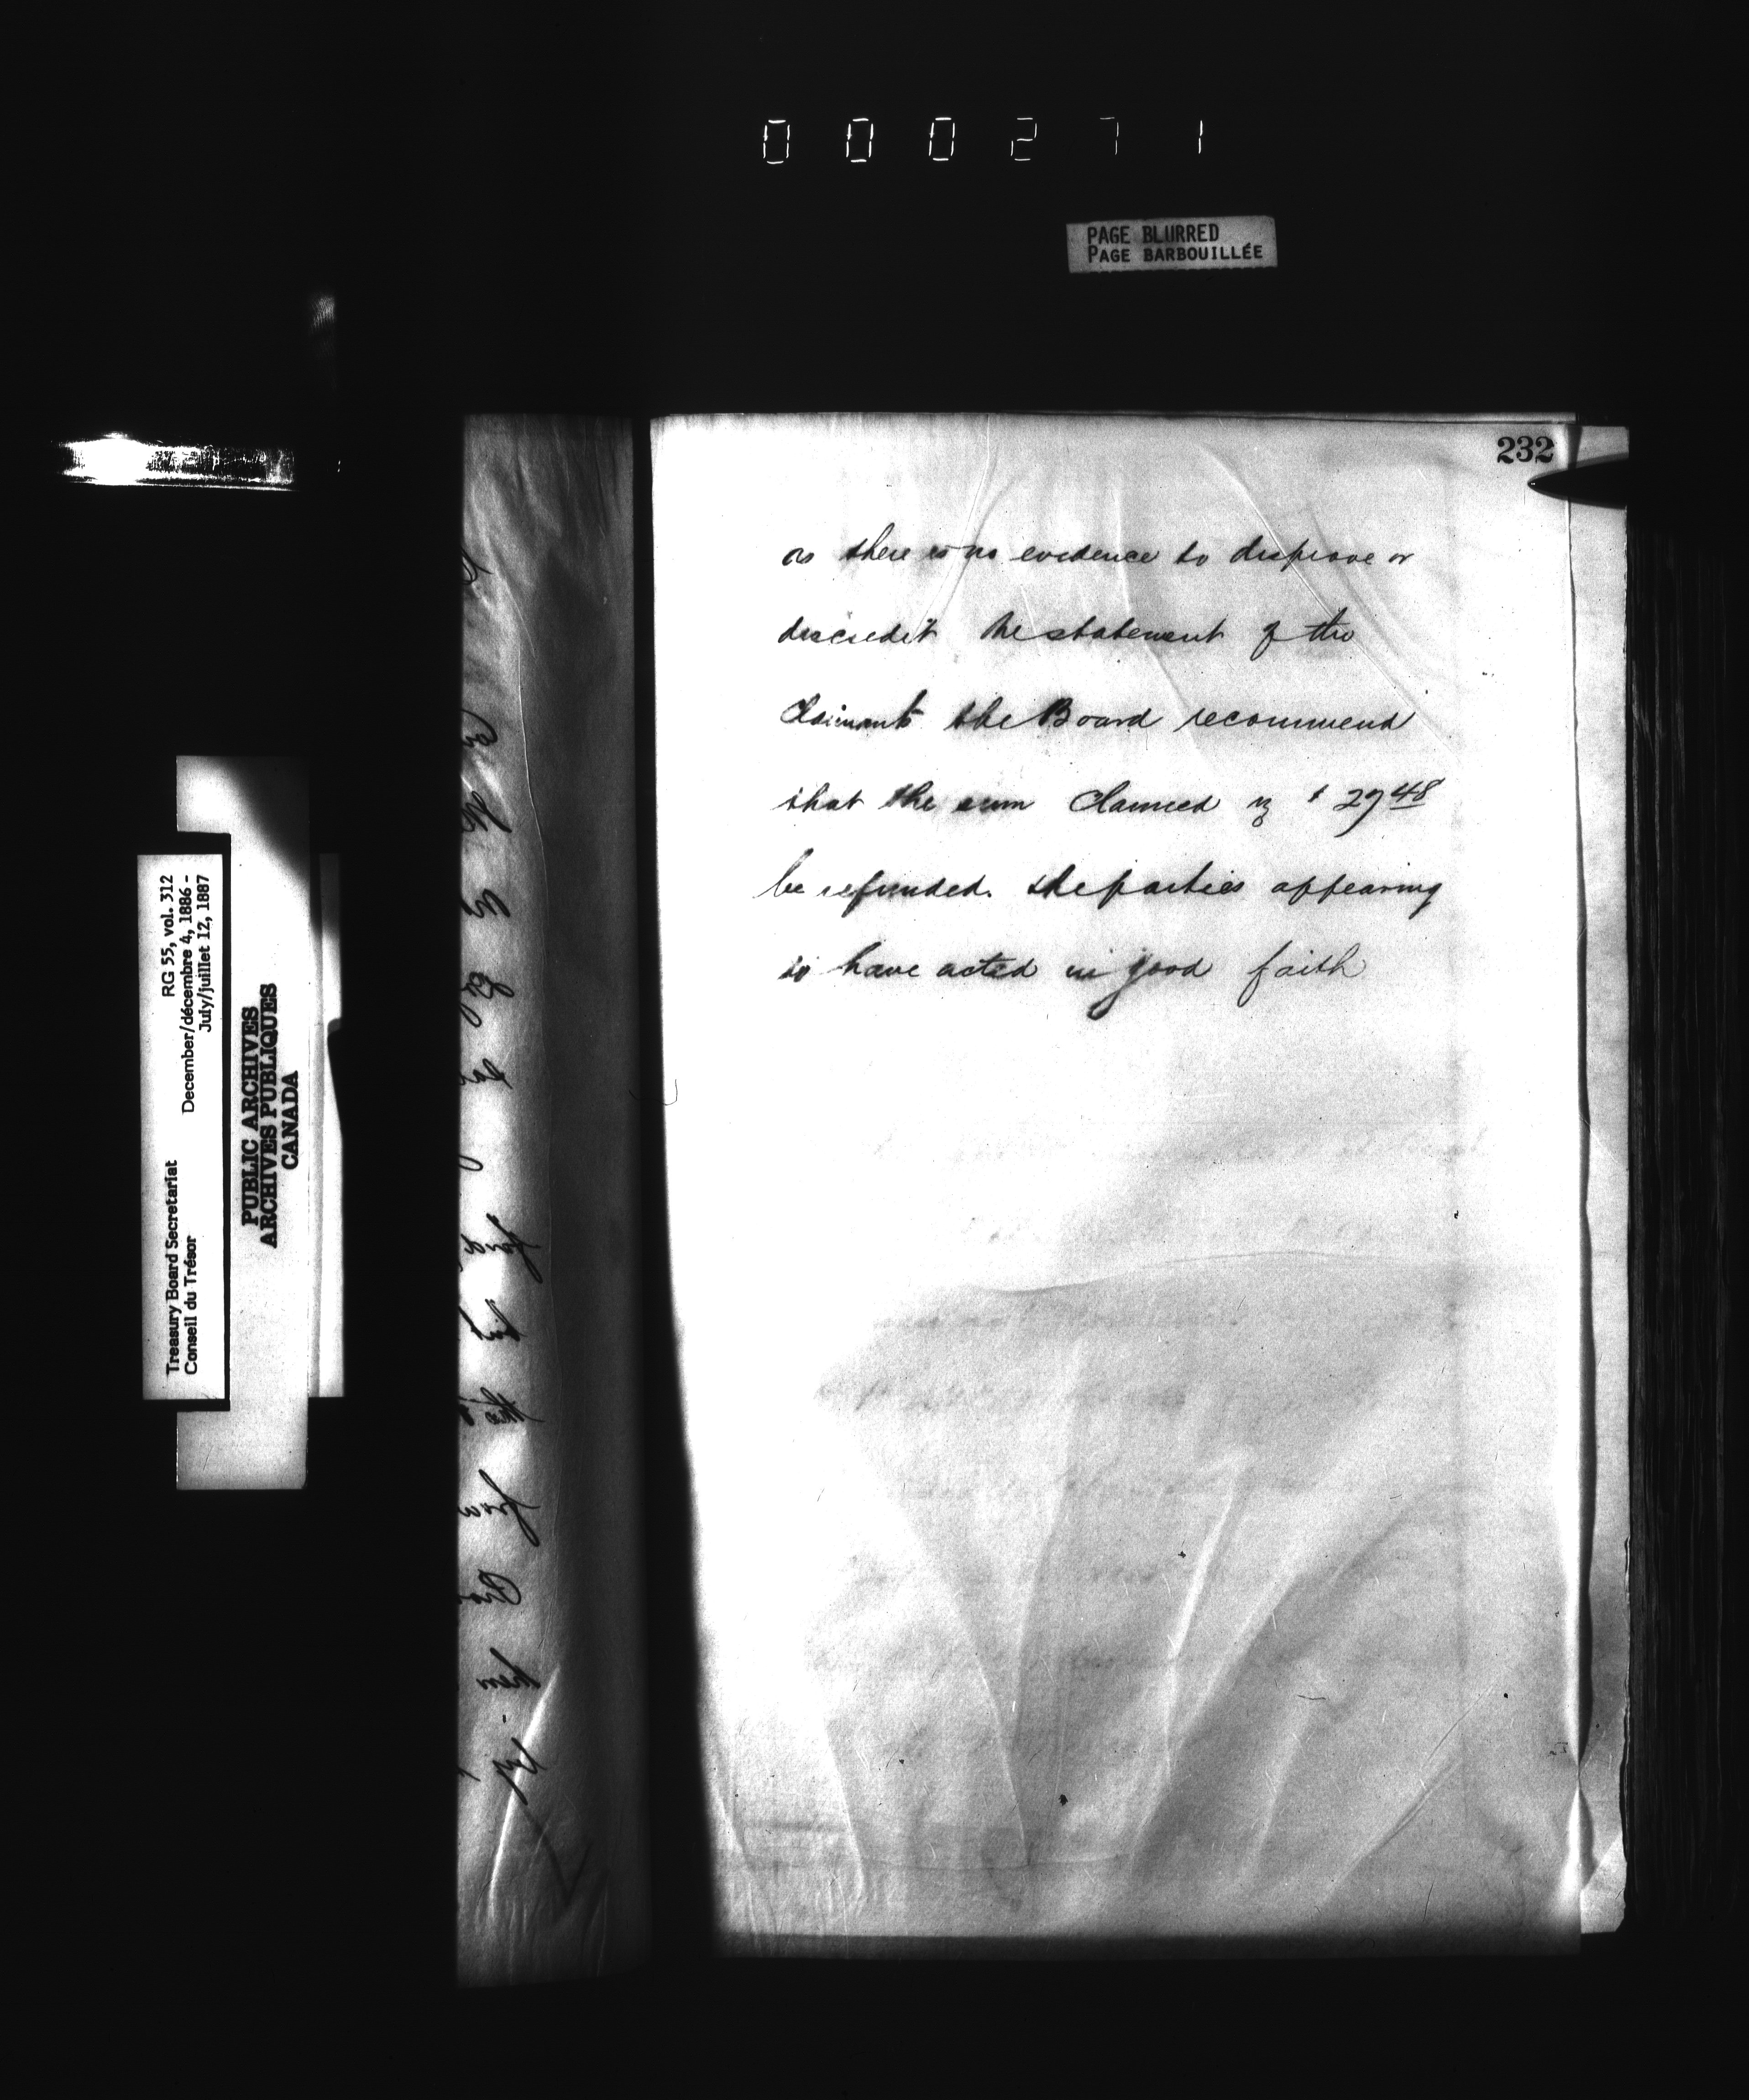 000271
PAGE BLURRED
PAGE BARBOUILLÉE
232
as there is no evidence to disprove or
discredit the statement of the
Claimants the Board recommend
that the sum Claimed viz $ 27 48
be refunded. the parties appearing
to have acted in good faith
Treasury Board Secretariat RG 55, vol. 312
Conseil du Trésor December/décembre 4, 1886 -
July/juillet 12, 1887
PUBLIC ARCHIVES
ARCHIVES PUBLIQUES
CANADA